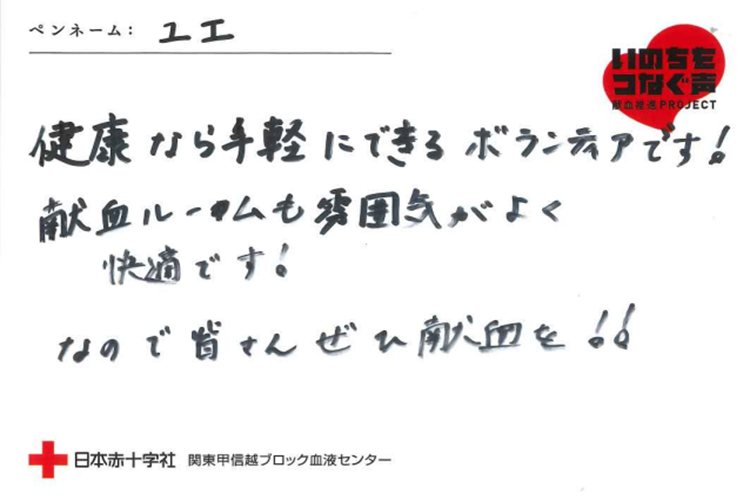 ペンネーム： ユエ
いのちを
つなぐ声
献血推進PROJECT
健康なら手軽にできるボランティアです！
献血ルームも雰囲気がよく
快適です！
なので皆さんぜひ献血を！！
日本赤十字社 関東甲信越ブロック血液センター